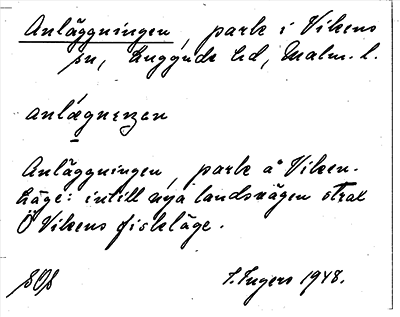 Anläggningen, park i Vikens
sn, Luggude hd, Malm. l.
anlægnenen
Anläggningen, park å Viken-
läge: intill nya landsvägen strax
Ö Vikens fiskläge.
SOS
I. Ingers 1948.